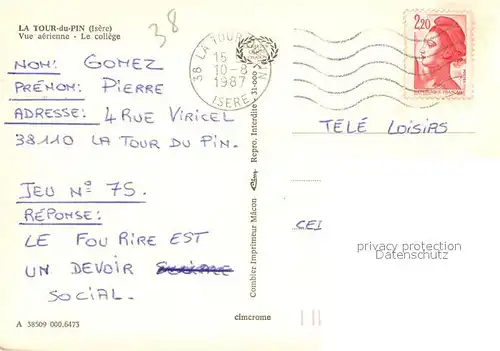 LA TOUR-du-PIN (Isère)
Vue aérienne - Le collège
38
NOM: GOMEZ
PRÉNOM: PIERRE
ADRESSE: 4 RUE VIRICEL
38110 LA TOUR DU PIN.
JEU Nº 75.
RÉPONSE:
LE FOU RIRE EST
UN DEVOIR
SOCIAL.
A 38509 000.6473
38 LA TOUR
15
10-8
1987
ISERE
Combier Imprimeur Mâcon
Repro. Interdite - 31-000
cimcrome
2,20
TÉLÉ LOISIRS
CEI
privacy protection